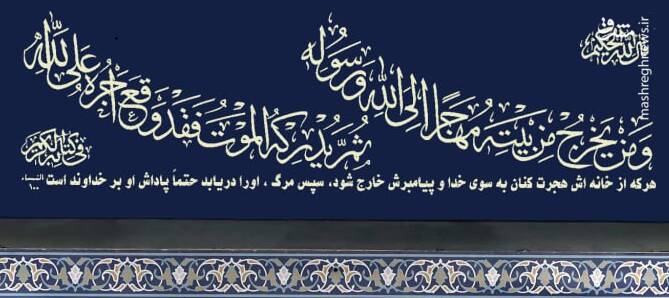 قال الله الحكيم
في كتابه الكريم
وَمَنْ يَخْرُجْ مِنْ بَيْتِهِ مُهَاجِرًا إِلَى اللَّهِ وَرَسُولِهِ
ثُمَّ يُدْرِكْهُ الْمَوْتُ فَقَدْ وَقَعَ أَجْرُهُ عَلَى اللَّهِ
هرکه از خانه اش هجرت کنان به سوی خدا و پیامبرش خارج شود، سپس مرگ ، اورا دریابد حتماً پاداش او بر خداوند است النساء ۱۰۰
مشرق
mashreghnews.ir